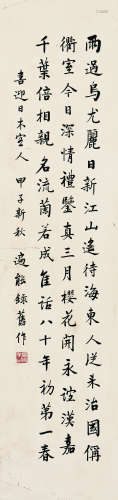 雨過烏尤麗日新江山遙待海東人從来治國稱
衢室今日深情禮鑒真三月櫻花開永誼漢嘉
千葉倍相親名流蘭若成佳話八十年初第一春
喜迎日本客人 甲子新秋 遍能錄舊作